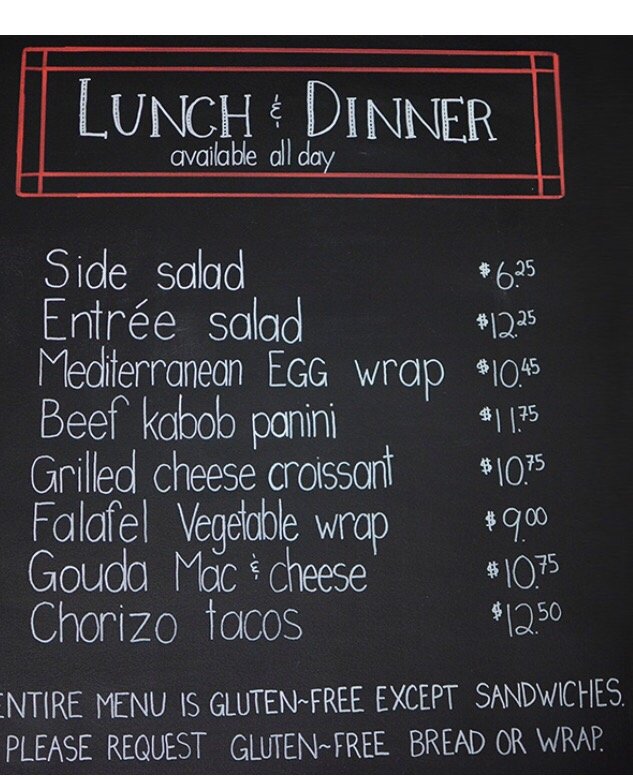 LUNCH & DINNER
available all day
Side salad $6.25
Entrée salad $12.25
Mediterranean EGG wrap $10.45
Beef kabob panini $11.75
Grilled cheese croissant $10.75
Falafel Vegetable wrap $9.00
Gouda Mac & cheese $10.75
Chorizo tacos $12.50
ENTIRE MENU IS GLUTEN~FREE EXCEPT SANDWICHES.
PLEASE REQUEST GLUTEN~FREE BREAD OR WRAP.